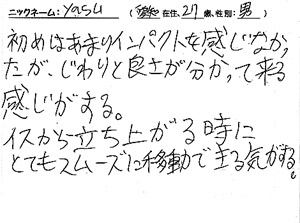 ニックネーム:yasu (愛知在住、27歳、性別:男)
初めはあまりインパクトを感じなかっ
たが、じわりと良さが分かって来る
感じがする。
イスから立ち上がる時に
とてもスムーズに移動できる気がする。